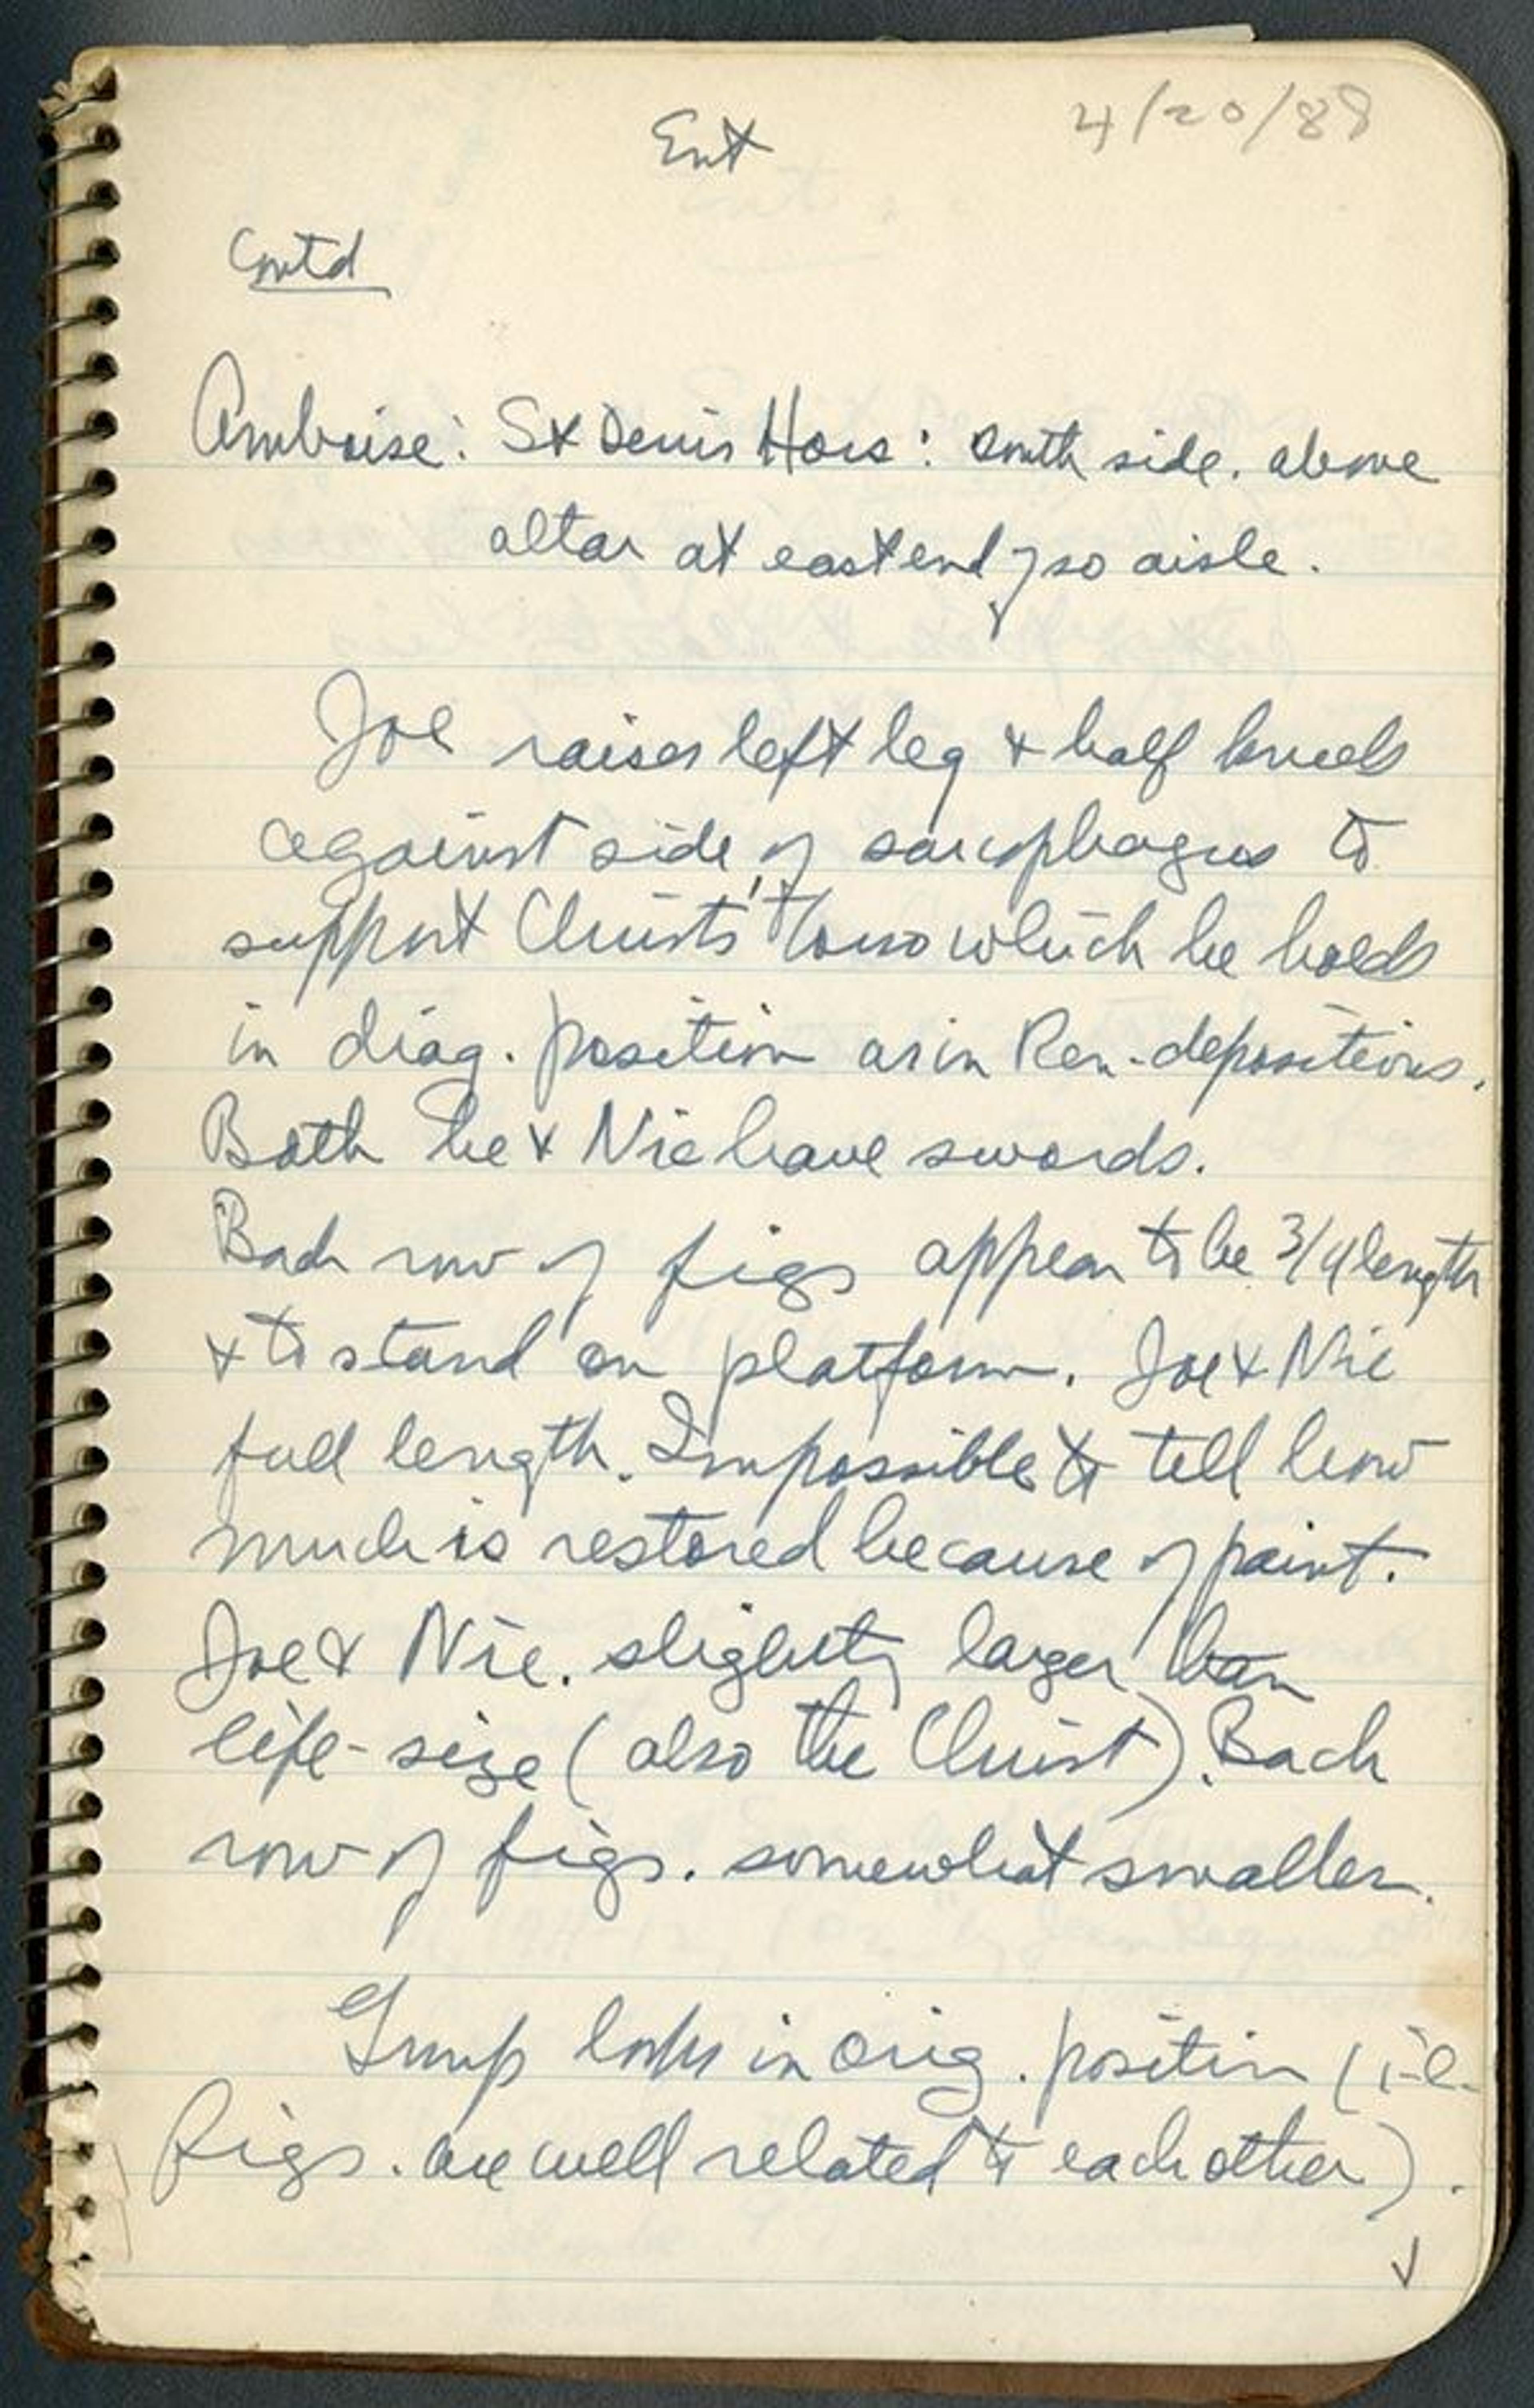 Ent
4/20/88
Contd
Amboise: St Denis Hors: south side. above
altar at east end of so aisle.
Joe raises left leg & half kneels
against side of sarcophagus to
support Christ's torso which he holds
in diag. position as in Ren. depositions.
Both he & Nic have swords.
Back row of figs appear to be 3/4 length
& to stand on platform. Joe & Nic
full length. Impossible to tell how
much is restored because of paint.
Joe & Nic. slightly larger than
life-size (also the Christ). Back
row of figs. somewhat smaller.
Group looks in orig. position (i.e.
figs. are well related to each other).